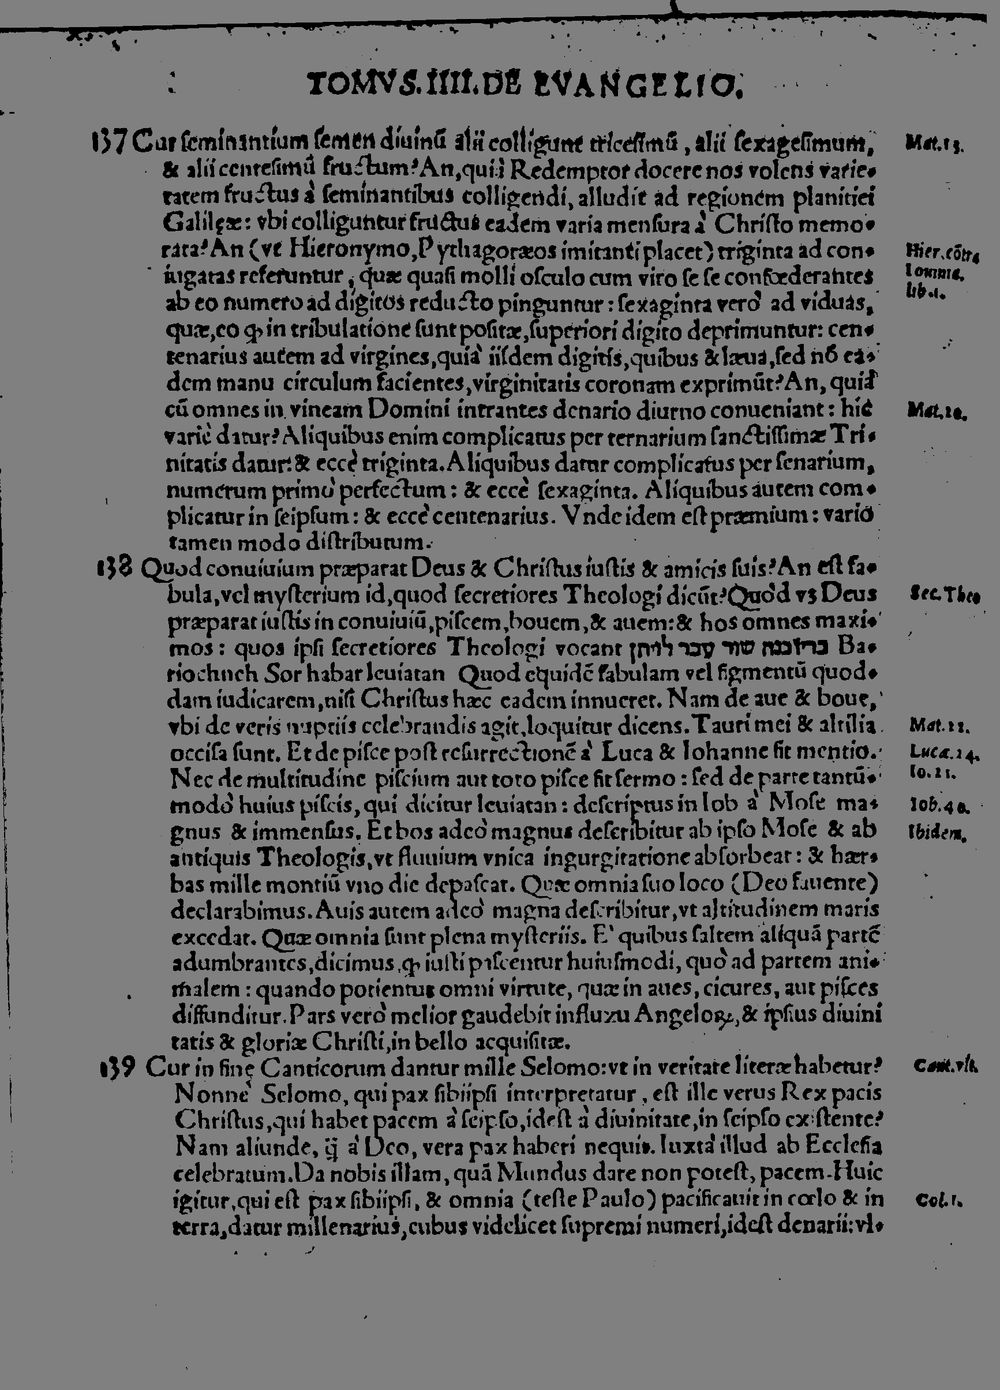 TOMVS. IIII. DE EVANGELIO.
137 Cur seminantium semen diuinũ alii colligunt tricesimũ, alii sexagesimum, Mat.13.
& alii centesimũ fructum? An, quia Redemptor docere nos volens varie-
tatem fructus à seminantibus colligendi, alludit ad regionem planitiei
Galilęæ: vbi colliguntur fructus eadem varia mensura à Christo memo-
rata? An (vt Hieronymo, Pythagoræos imitanti placet) triginta ad con- Hier.cõtra
iugatas referuntur, quæ quasi molli osculo cum viro se se confœderantes Iouinia.
ab eo numero ad digitos reducto pinguntur: sexaginta verò ad viduas, lib.1.
quæ, eo ꝙ in tribulatione sunt positæ, superiori digito deprimuntur: cen-
tenarius autem ad virgines, quià iisdem digitis, quibus & læua, sed nõ ea-
dem manu circulum facientes, virginitatis coronam exprimũt? An, quià
cũ omnes in vineam Domini intrantes denario diurno conueniant: hic Mat.20.
variè datur? Aliquibus enim complicatus per ternarium sanctissimæ Tri-
nitatis datur: & eccè triginta. Aliquibus datur complicatus per senarium,
numerum primò perfectum: & eccè sexaginta. Aliquibus autem com-
plicatur in seipsum: & eccè centenarius. Vnde idem est præmium: vario
tamen modo distributum.
138 Quod conuiuium præparat Deus & Christus iustis & amicis suis? An est fa-
bula, vel mysterium id, quod secretiores Theologi dicũt? Quòd vʒ Deus Sec.Theo
præparat iustis in conuiuiũ, piscem, bouem, & auem: & hos omnes maxi-
mos: quos ipsi secretiores Theologi vocant ברזוכנה שור עבר לויתן Ba-
riochnch Sor habar leuiatan Quod equidẽ fabulam vel figmentũ quod-
dam iudicarem, nisi Christus hæc eadem innueret. Nam de aue & boue,
vbi de veris nuptiis celebrandis agit, loquitur dicens. Tauri mei & altilia Mat.22.
occisa sunt. Et de pisce post resurrectionẽ à Luca & Iohanne fit mentio. Luca.24.
Nec de multitudine piscium aut toto pisce fit sermo: sed de parte tantũ- Io.21.
modò huius piscis, qui dicitur leuiatan: descriptus in Iob à Mose ma- Iob.40.
gnus & immensus. Et bos adeò magnus describitur ab ipso Mose & ab Ibidem.
antiquis Theologis, vt fluuium vnica ingurgitatione absorbeat: & her-
bas mille montiũ vno die depascat. Quæ omnia suo loco (Deo fauente)
declarabimus. Auis autem adeò magna describitur, vt altitudinem maris
excedat. Quæ omnia sunt plena mysteriis. E' quibus saltem aliquã partẽ
adumbrantes, dicimus, ꝙ iusti piscentur huiusmodi, quò ad partem ani-
malem: quando potientur omni virtute, quæ in aues, cicures, aut pisces
diffunditur. Pars verò melior gaudebit influxu Angeloꝝ, & ipsius diuini
tatis & gloriæ Christi, in bello acquisitæ.
139 Cur in fine Canticorum dantur mille Selomo: vt in veritate literæ habetur? Cant.vlt.
Nonnè Selomo, qui pax sibiipsi interpretatur, est ille verus Rex pacis
Christus, qui habet pacem à seipso, idest à diuinitate, in seipso existente?
Nam aliunde, q̃ à Deo, vera pax haberi nequit. Iuxtà illud ab Ecclesia
celebratum. Da nobis illam, quã Mundus dare non potest, pacem. Huic
igitur, qui est pax sibiipsi, & omnia (teste Paulo) pacificauit in cœlo & in Col.1.
terra, datur millenarius, cubus videlicet supremi numeri, idest denarii: vl-